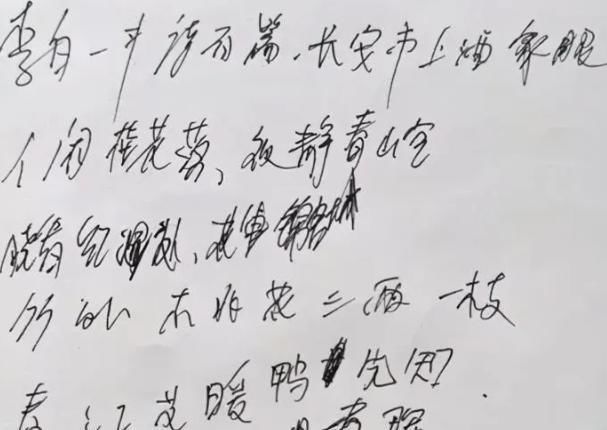 李白一斗诗百篇.长安市上酒家眠
人闲桂花落、夜静春山空
晓看红湿处、花重锦官
竹 桃花三两一枝
春江 暖鸭先知